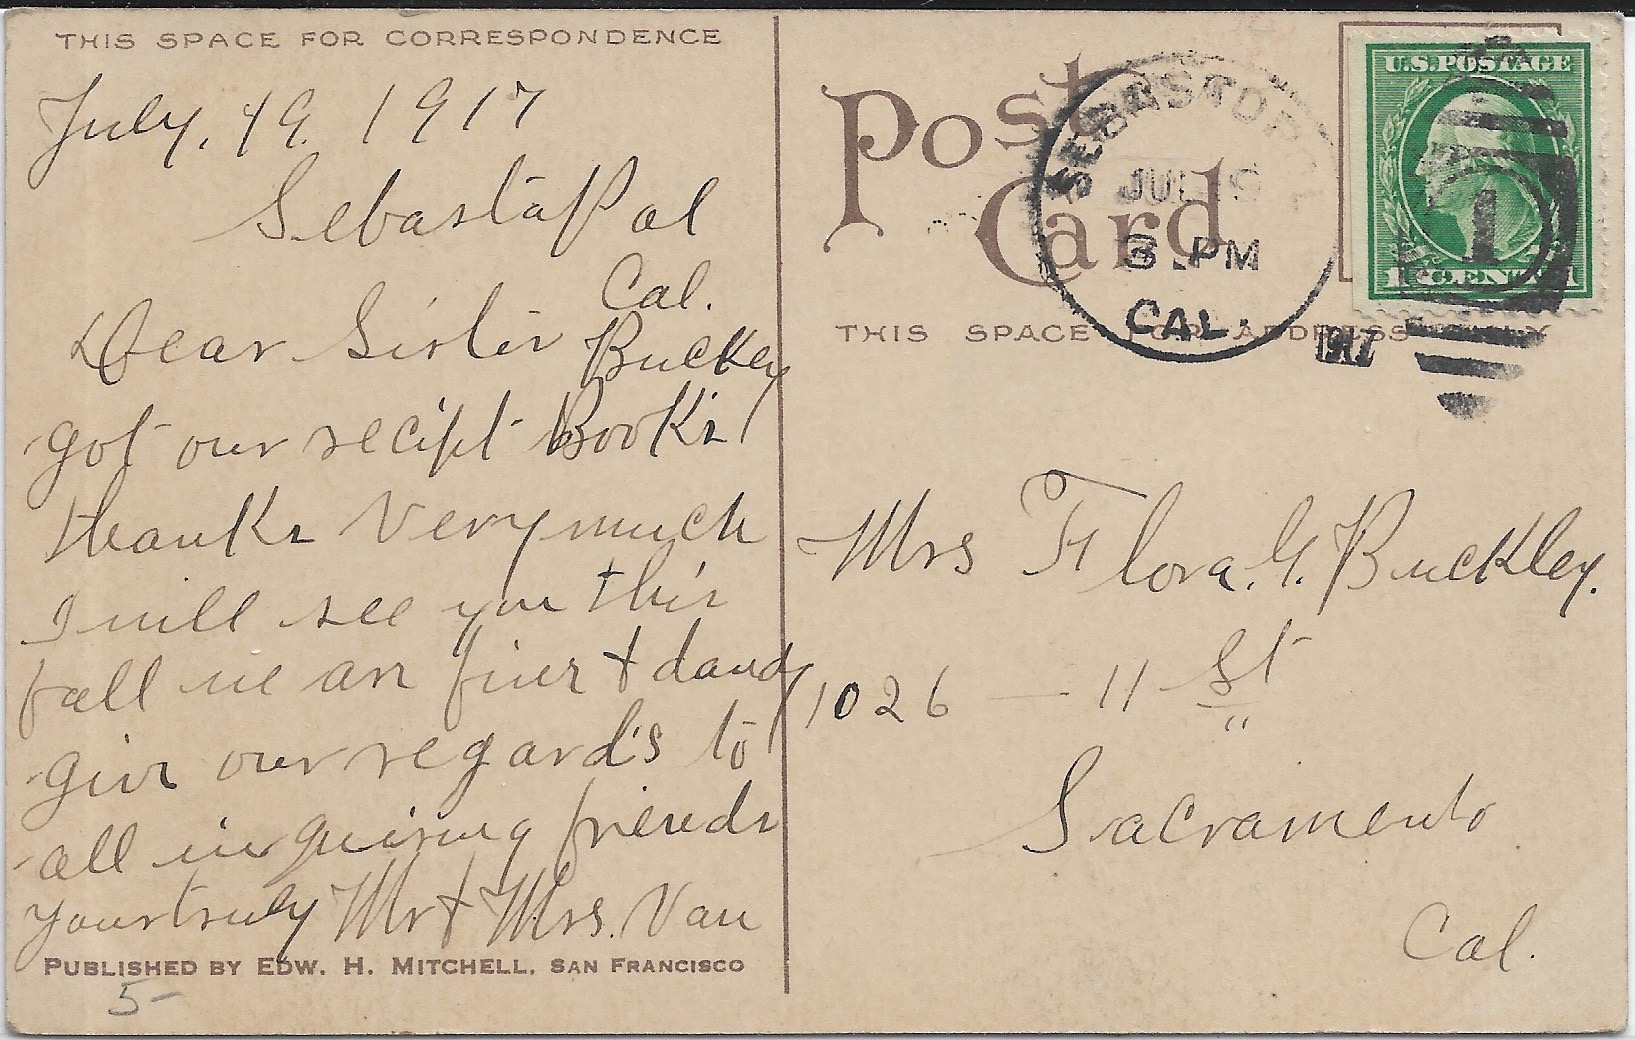 THIS SPACE FOR CORRESPONDENCE
July, 19. 1917
Sebastapol
Cal.
Dear Sister Buckley
got our recipt Book's
thanks Very much
I will see you this
fall we are finer & dandy
give our regard's to
all inquiring friends
yours truly Mr & Mrs. Van
PUBLISHED BY EDW. H. MITCHELL. SAN FRANCISCO
5-
Post
Card
SEBASTOPOL
JUL 19
3 PM
CAL.
1917
U.S. POSTAGE
1 CENT 1
1
THIS SPACE FOR ADDRESS ONLY
Mrs Flora. G. Buckley.
1026 — 11 St
Sacramento
Cal.